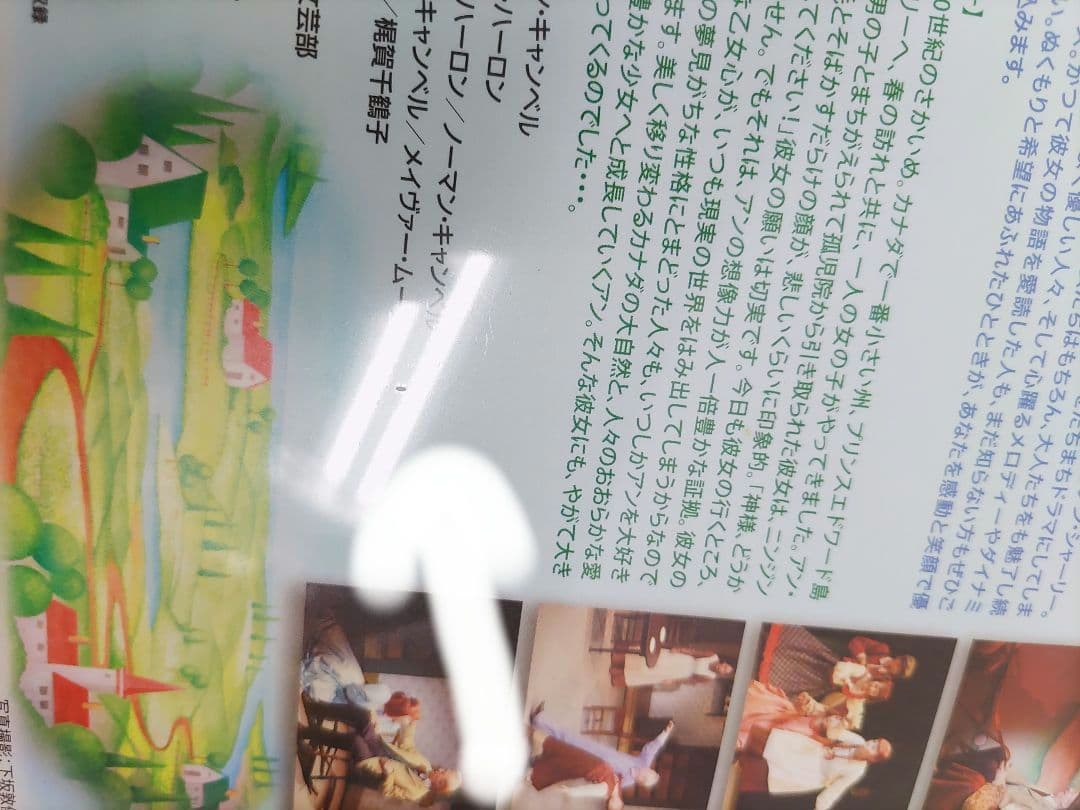 ン・シャーリー。
たちまちドラマにしてしま
ちはもちろん、大人たちをも魅了し続
く優しい人々、そして心躍るメロディーやダイナミ
ス。かつて彼女の物語を愛読した人も、まだ知らない方もぜひご
い。ぬくもりと希望にあふれたひとときが、あなたを感動と笑顔で優
込みます。
】
0世紀のさかいめ。カナダで一番小さい州、プリンスエドワード島
リーへ、春の訪れと共に、一人の女の子がやってきました。アン・
男の子とまちがえられて孤児院から引き取られた彼女は、ニンジン
とそばかすだらけの顔が、悲しいくらいに印象的。「神様、どうか
てください!」彼女の願いは切実です。今日も彼女の行くところ、
せん。でもそれは、アンの想像力が人一倍豊かな証拠。彼女の
な乙女心が、いつも現実の世界をはみ出してしまうからなので
の夢見がちな性格にとまどった人々も、いつしかアンを大好き
ます。美しく移り変わるカナダの大自然と、人々のおおらかな愛
豊かな少女へと成長していくアン。そんな彼女にも、やがて大き
ってくるのでした・・・。
ン・キャンベル
ハーロン
ハーロン/ノーマン・キャンベル
キャンベル/メイヴァー・ムー
/梶賀千鶴子
文芸部
収録
写真撮影:下坂敦